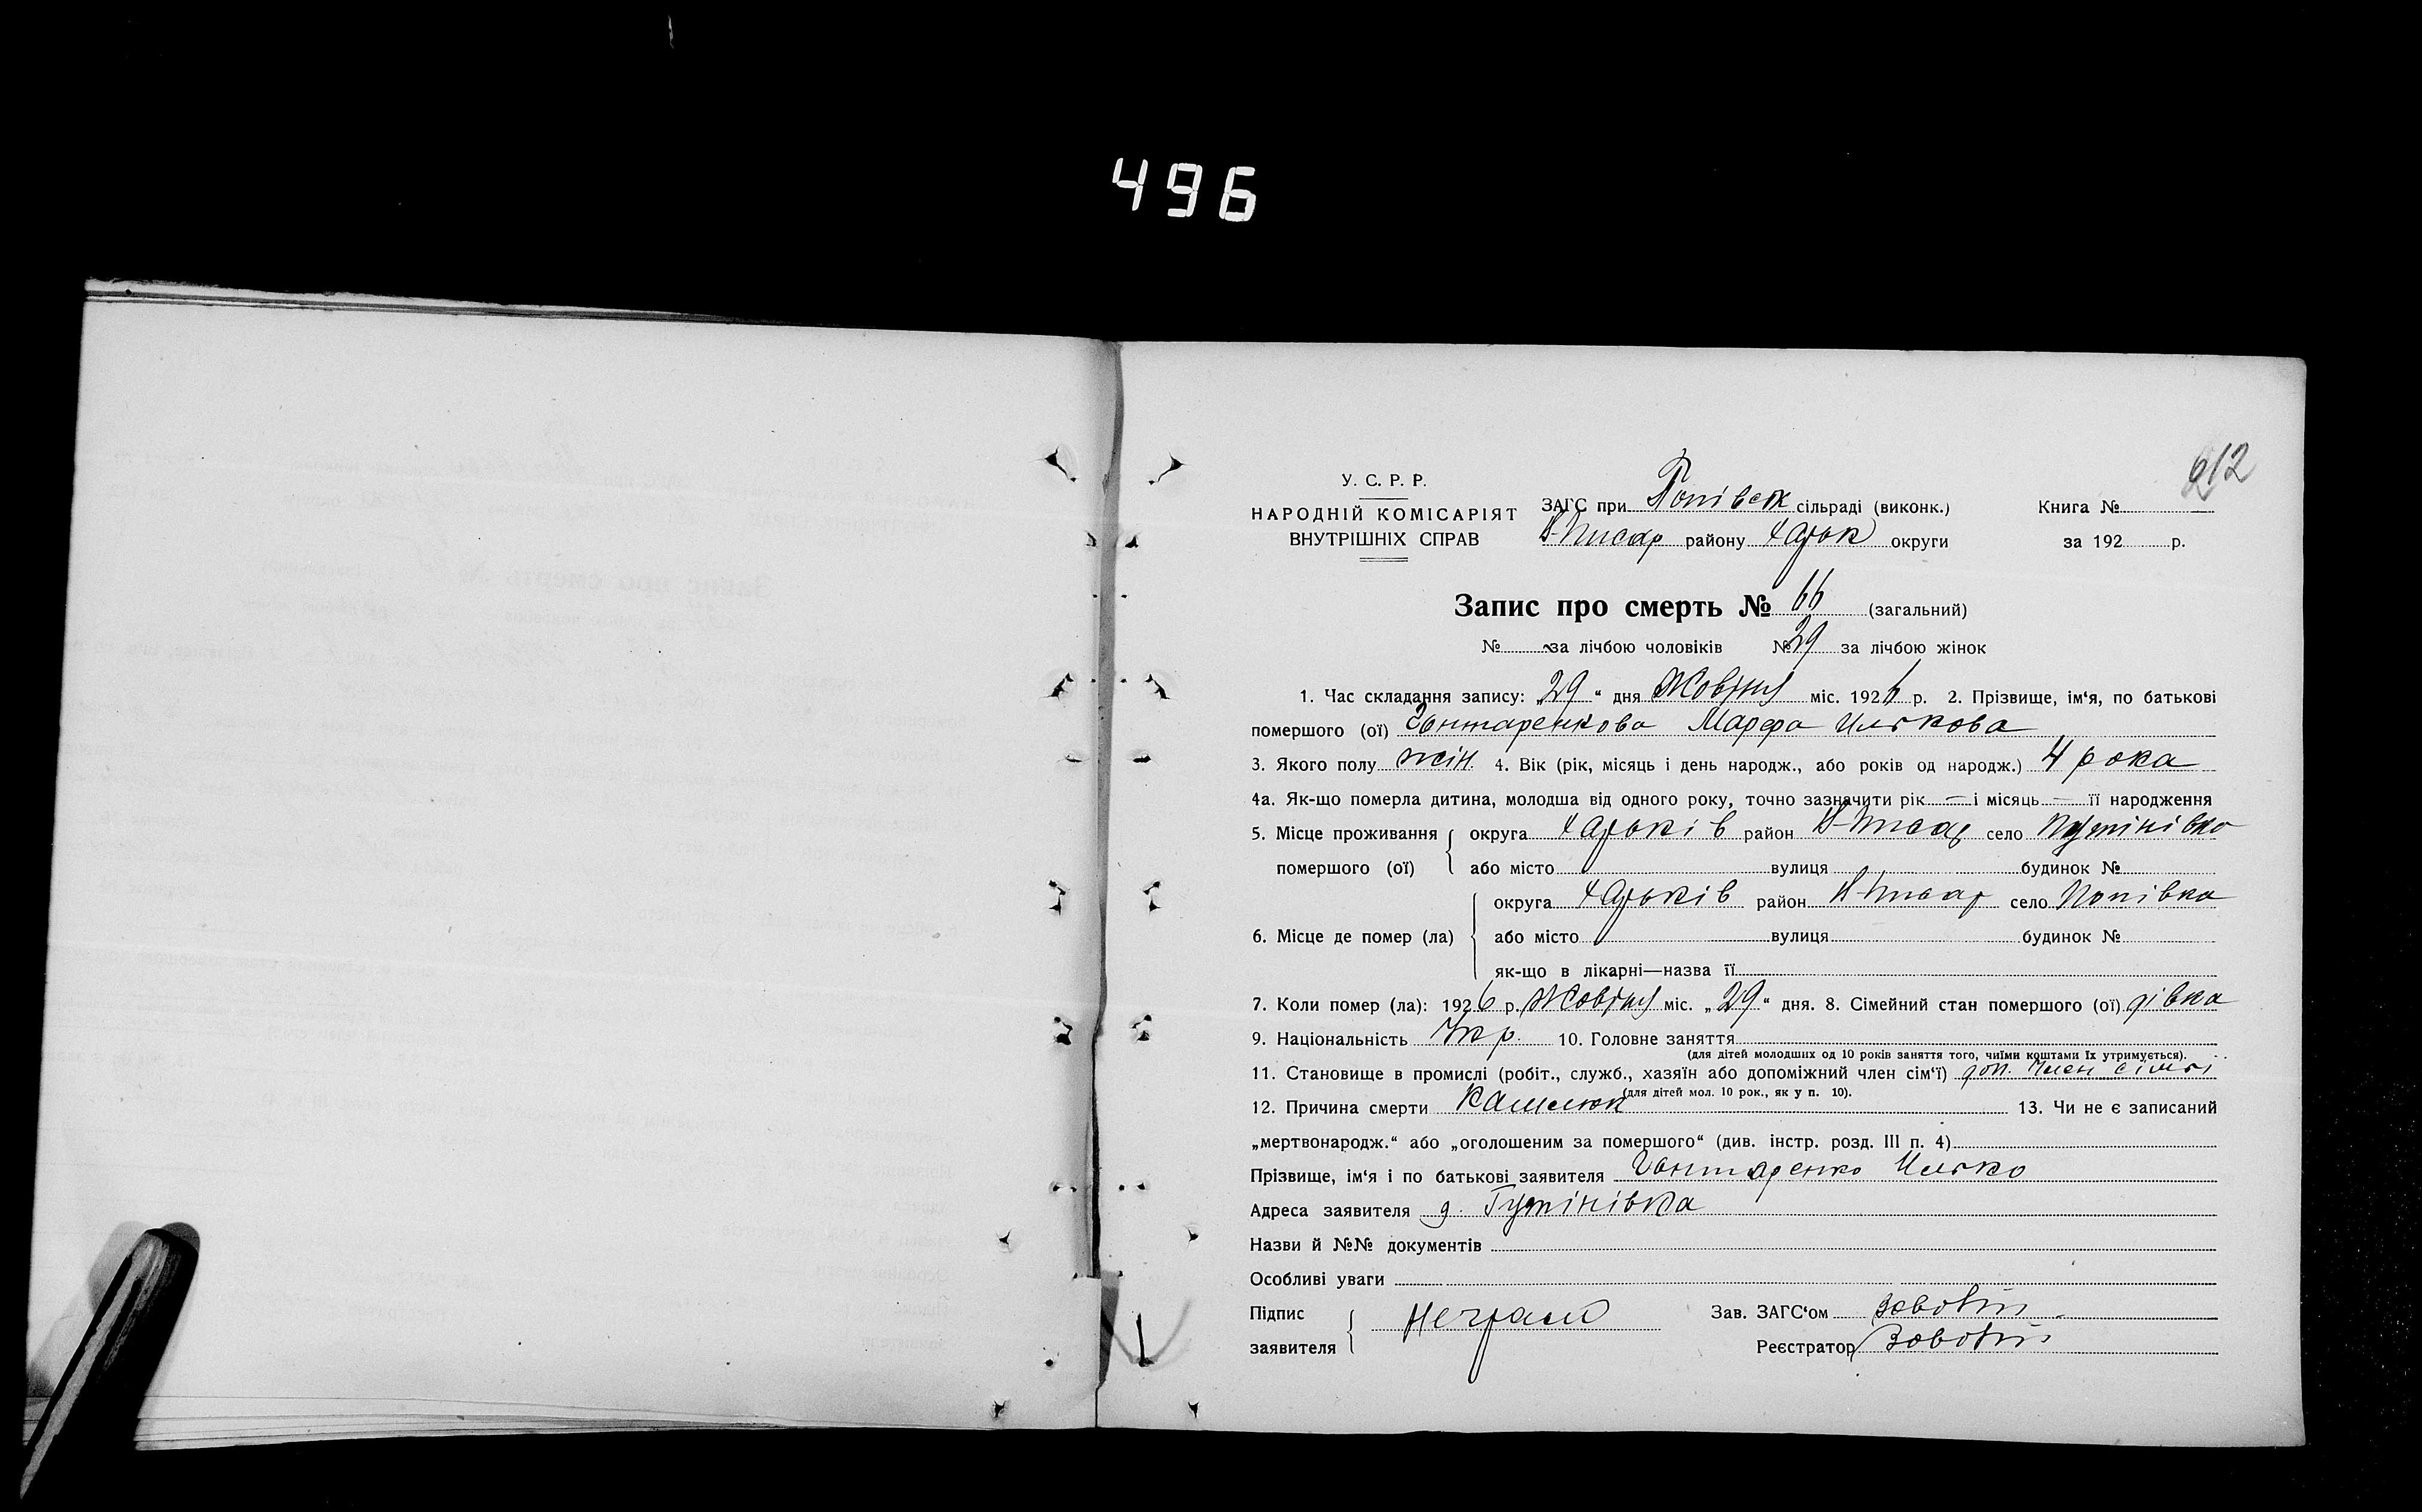 496
212
У. С. Р. Р.
НАРОДНІЙ КОМІСАРІЯТ
ВНУТРІШНІХ СПРАВ
ЗАГС при Попівск сільраді (виконк.)
Н-Писар району Харьк округи
Книга №
за 192 р.
Запис про смерть № 66 (загальний)
№ за лічбою чоловіків № 29 за лічбою жінок
1. Час складання запису: „29“ дня Жовтня міс. 1926 р. 2. Прізвище, ім‘я, по батькові
помершого (ої) Гонтаренкова Марфа Илькова
3. Якого полу жін. 4. Вік (рік, місяць і день народж., або років од народж.) 4 рока
4а. Як-що померла дитина, молодша від одного року, точно зазначити рік — і місяць — її народження
5. Місце проживання помершого (ої) округа Харьків район Н-Писар село
або місто вулиця будинок №
6. Місце де помер (ла) округа Харьків район Н-Писар село Попівка
або місто вулиця будинок №
як-що в лікарні—назва її
7. Коли помер (ла): 1926 р. Жовтня міс. „29“ дня. 8. Сімейний стан помершого (ої) дівка
9. Національність Укр. 10. Головне заняття
(для дітей молодших од 10 років заняття того, чиїми коштами їх утримується).
11. Становище в промислі (робіт., служб., хазяїн або допоміжний член сім‘ї) доп. член сімьі
(для дітей мол. 10 рок., як у п. 10).
12. Причина смерти Кашлюк 13. Чи не є записаний
„мертвонародж.“ або „оголошеним за помершого“ (див. інстр. розд. III п. 4)
Прізвище, ім‘я і по батькові заявителя Гонтаренко Илько
Адреса заявителя д.
Назви й №№ документів
Особливі уваги
Підпис заявителя Неграм
Зав. ЗАГС‘ом
Реєстратор